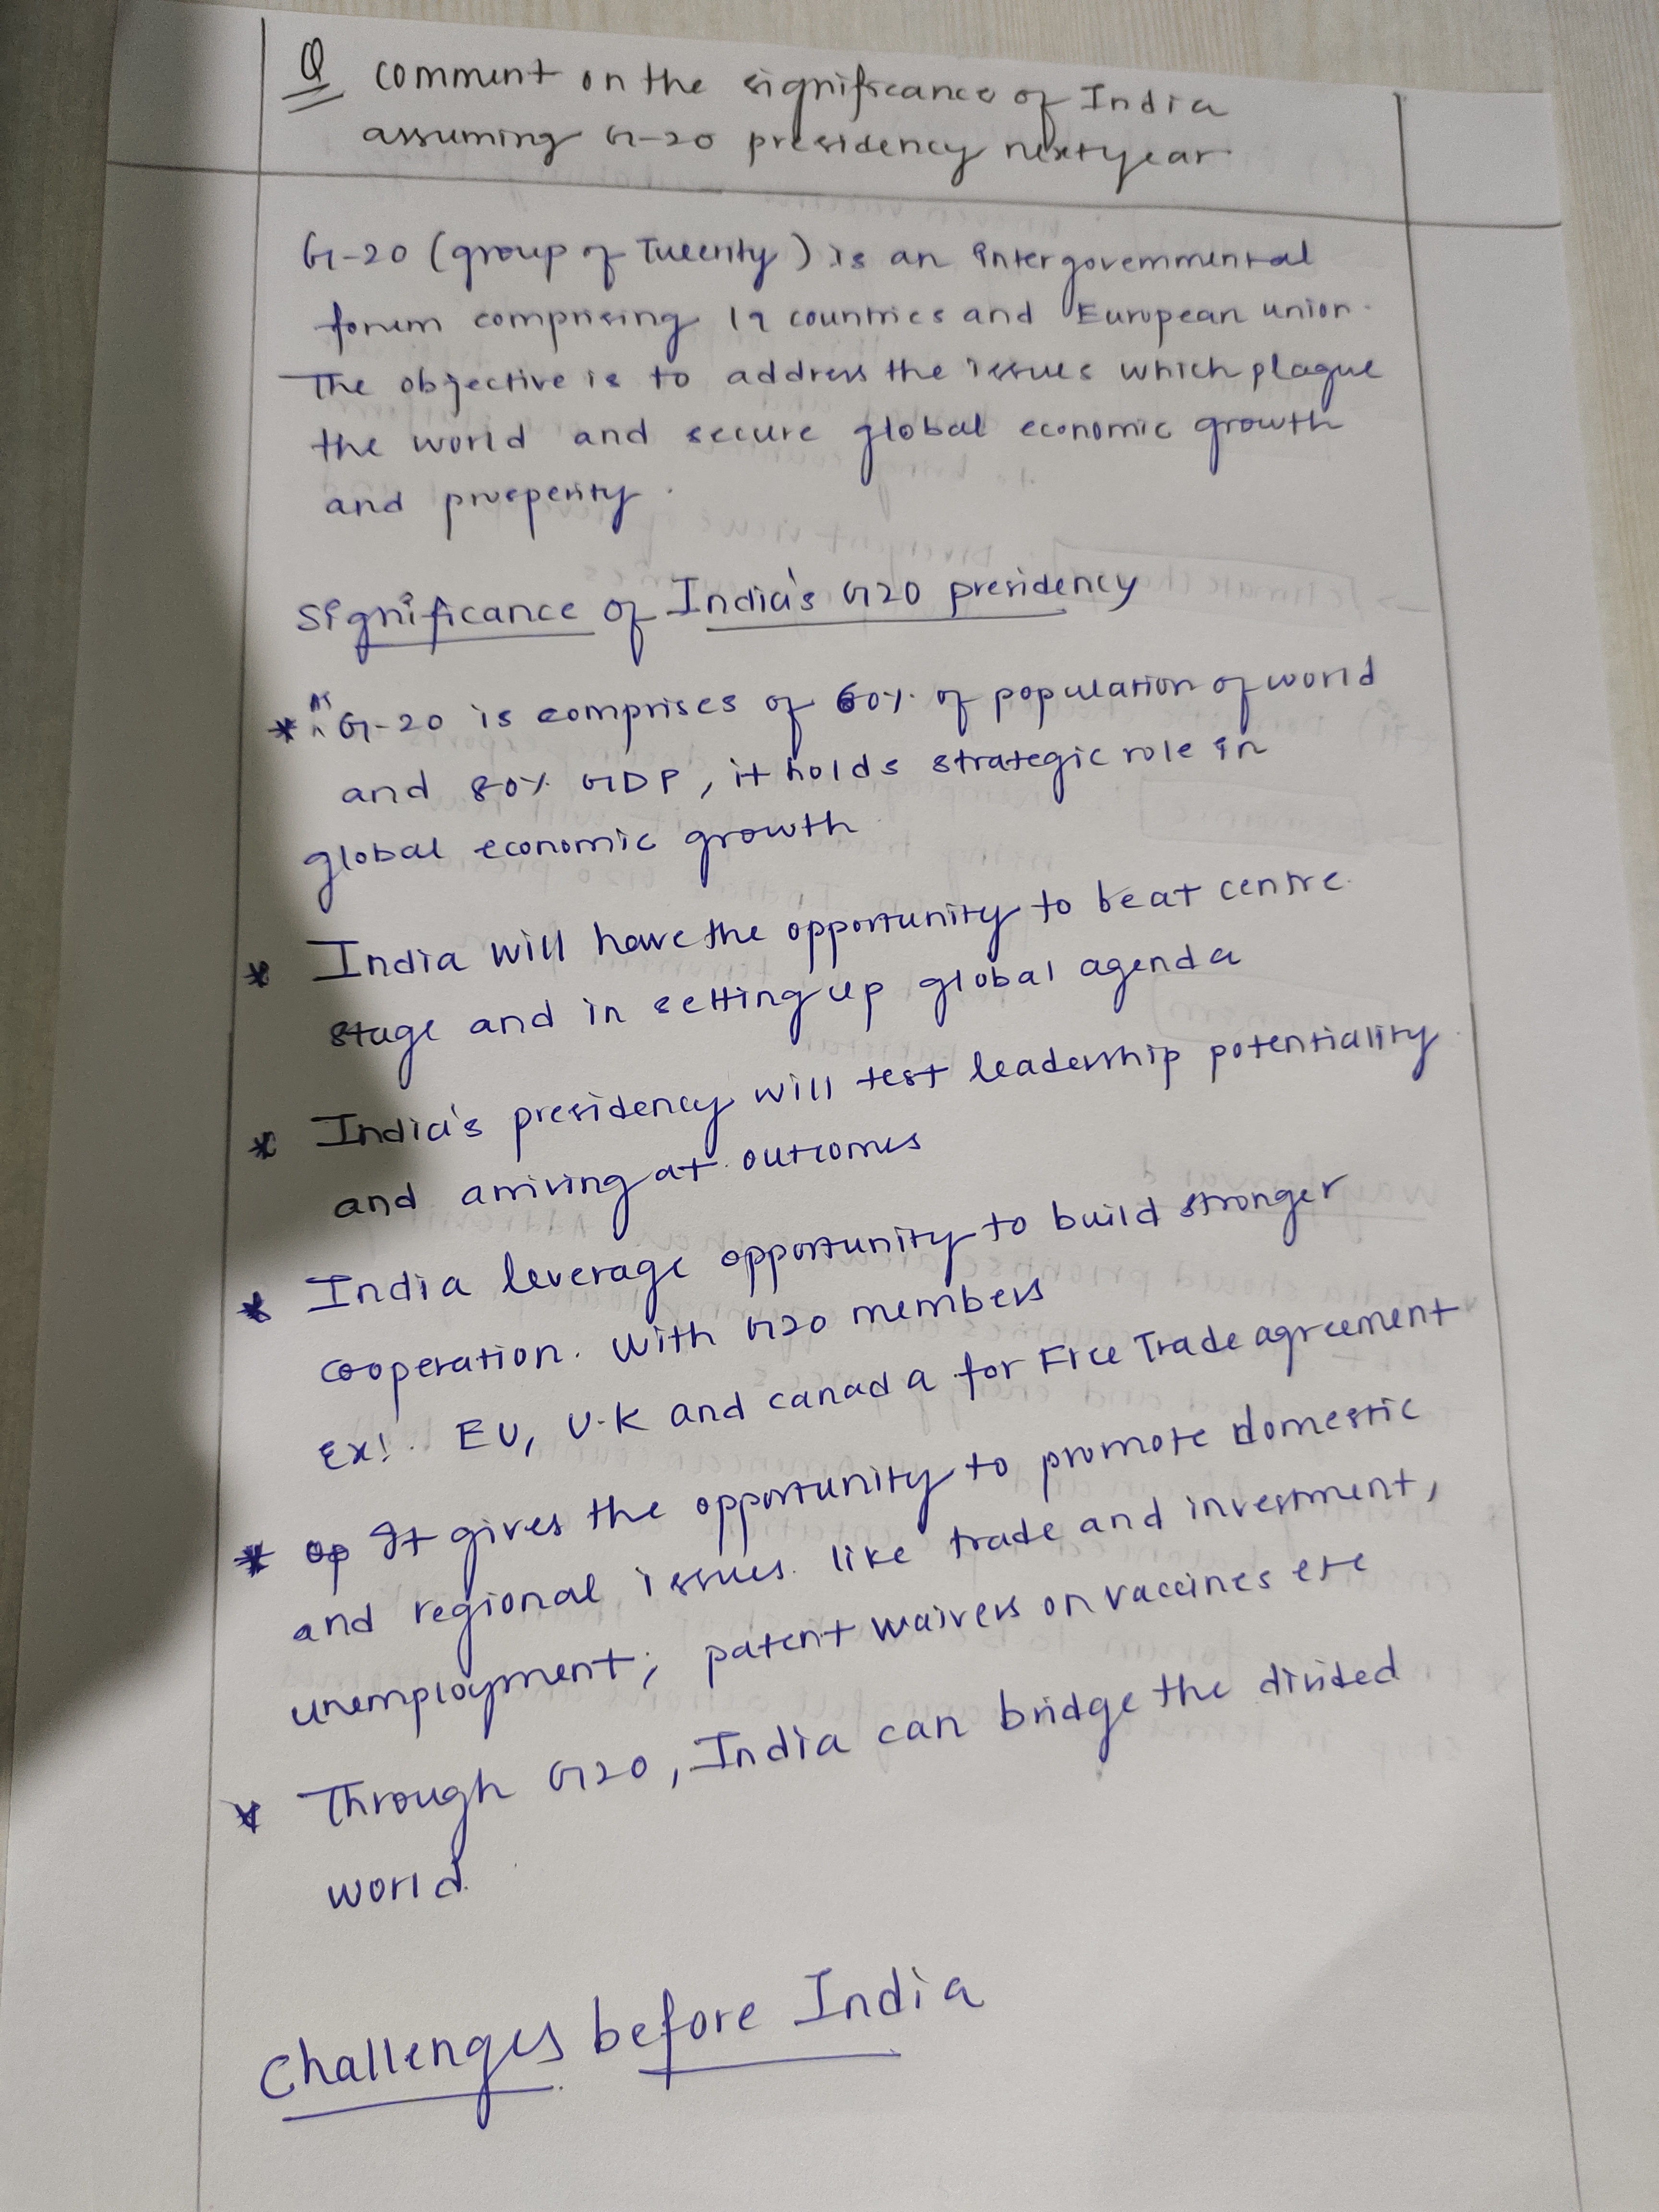 Q comment on the significance of India
assuming G-20 presidency next year.
G-20 (group of Twenty) is an intergovernmental
forum comprising 19 countries and European union.
The objective is to address the issues which plague
the world and secure global economic growth
and prosperity.
Significance of India's G20 presidency
* As G-20 is comprises of 60% of population of world
and 80% GDP, it holds strategic role in
global economic growth
* India will have the opportunity to be at centre
stage and in setting up global agenda
* India's presidency will test leadership potentiality
and arriving at outcomes
* India leverage opportunity to build stronger
cooperation. With G20 members
Ex: EU, U.K and canada for Free Trade agreement
* It gives the opportunity to promote domestic
and regional issues like trade and investment,
unemployment, patent waivers on vaccines etc
* Through G20, India can bridge the divided
world.
Challenges before India